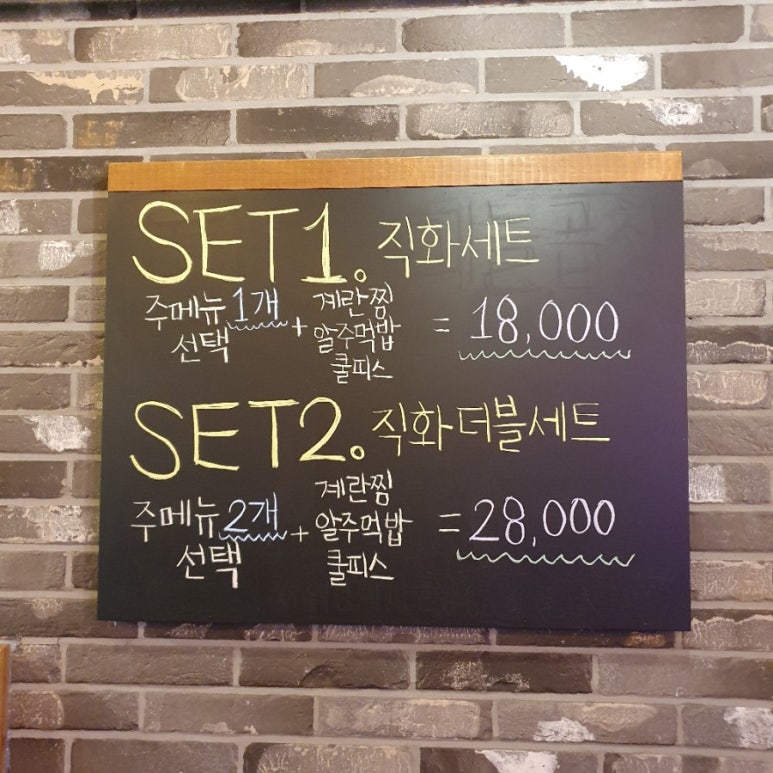 SET1. 직화세트
주메뉴 1개 선택 + 계란찜 알주먹밥 쿨피스 = 18,000
SET2. 직화더블세트
주메뉴 2개 선택 + 계란찜 알주먹밥 쿨피스 = 28,000